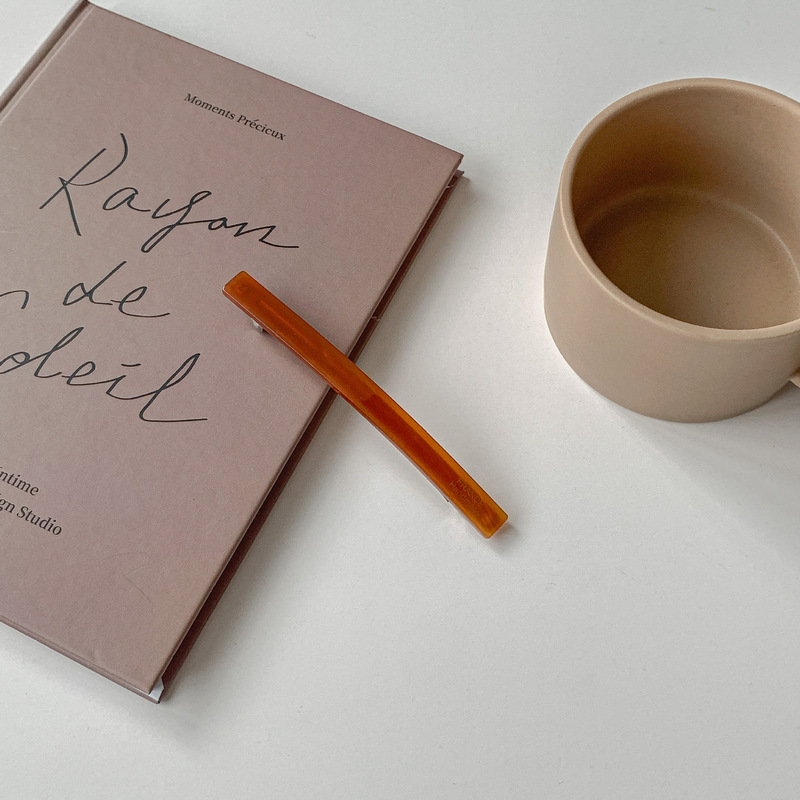 Moments Précieux
Rayon
de
oleil
ntime
gn Studio